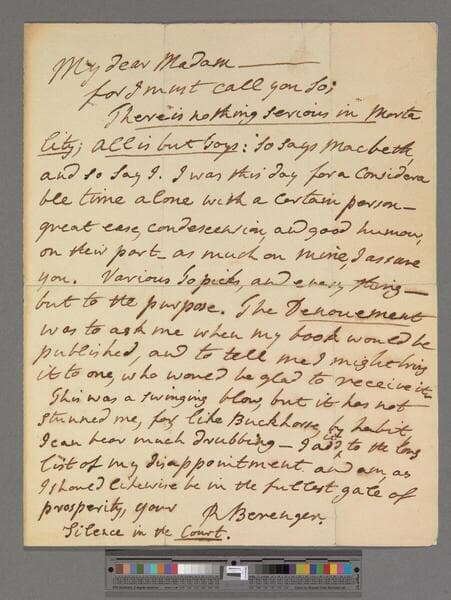 My dear Madam —
for I must call you so;
There is nothing serious in Morta
lity; all is but toys: so says Macbeth,
and so say I. I was this day for a considera
ble time alone with a certain person —
great ease, condescension, and good humour,
on their part — as much on mine, I assure
you. Various Topicks, and every thing —
but to the purpose. The Denouement
was to ask me when my book would be
published, and to tell me I might bring
it to one, who would be glad to receive it —
This was a swinging blow, but it has not
stunned me, for, like Buckhorse, by habit,
I can bear much drubbing — I add it to the long
list of my disappointment and am, as
I should likewise be in the fullest gale of
prosperity, your R Berenger.
Silence in the Court.